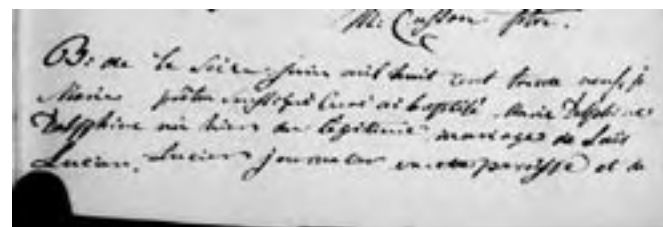 M. Cusson Ptre.
le seize juin mil huit cent trente neuf, je
prêtre soussigné Curé ai baptisé Marie Delphine
Delphine née hier du légitime mariage de Louis
Lucien, Lucien journalier en cette paroisse et de